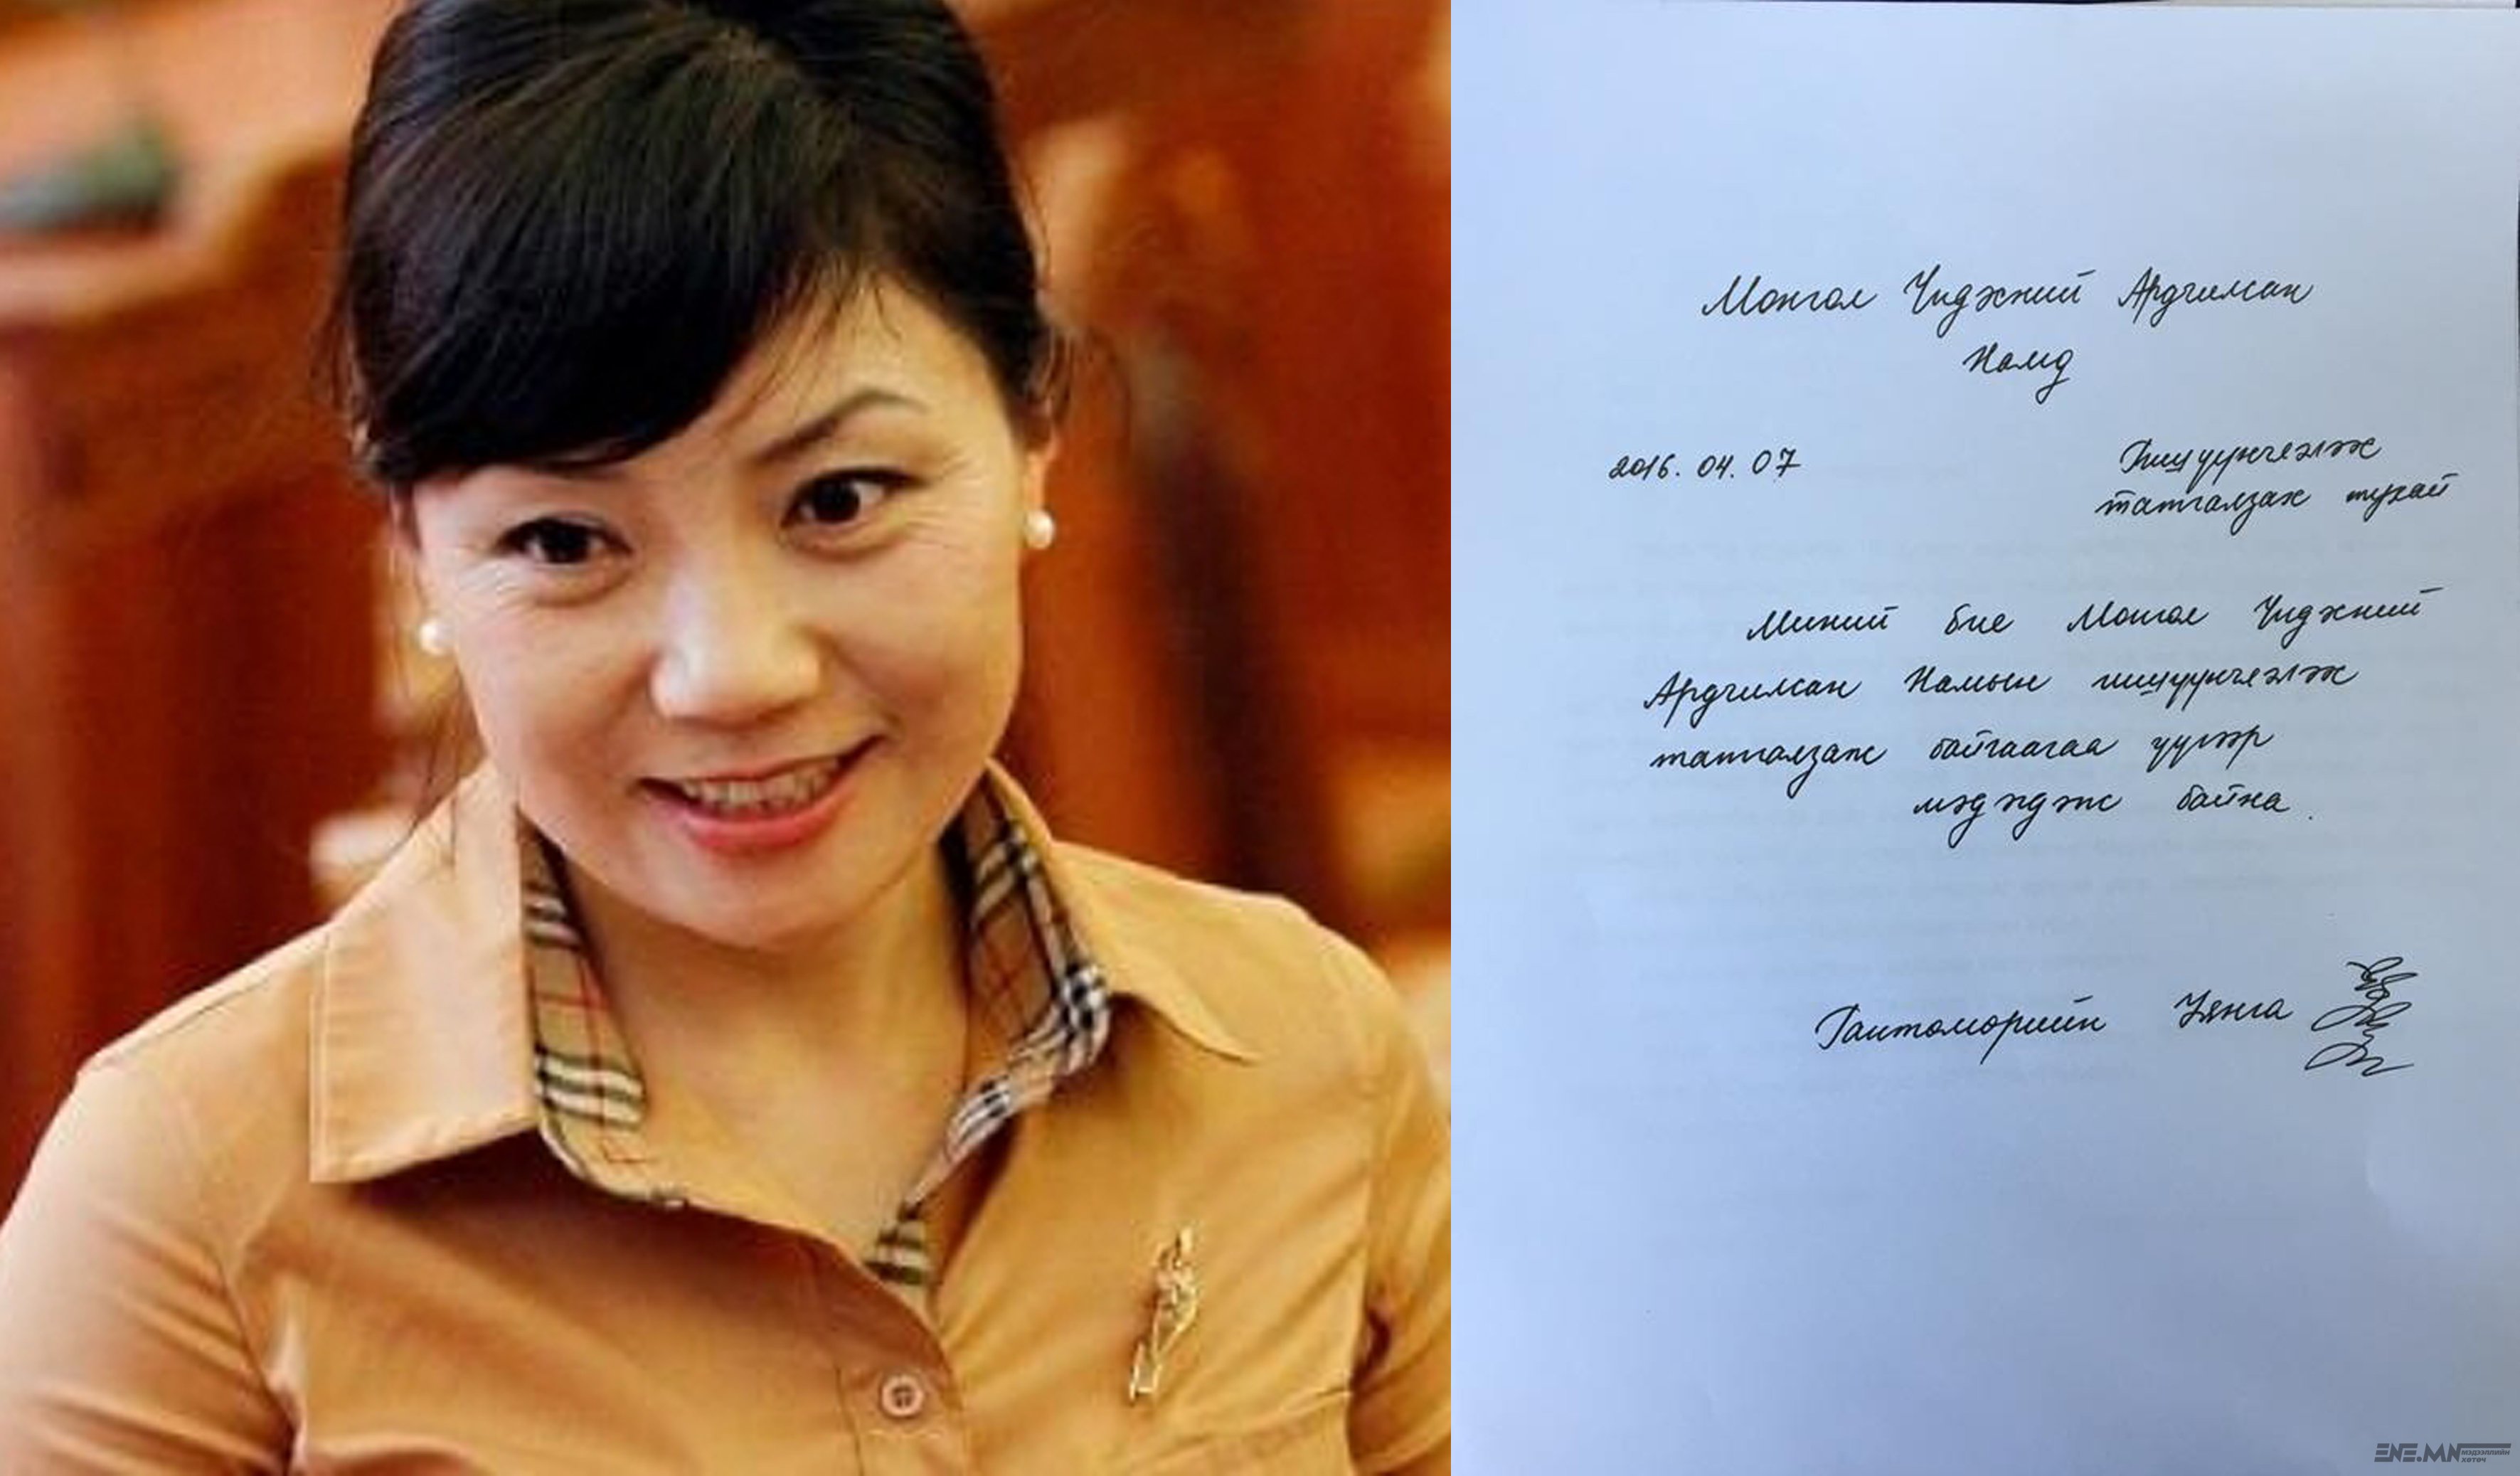 Монгол Чидэхний Ардчилсан
Намд
2016. 04. 07
Гишүүнчлэлээс
татгалзах тухай
Миний бие Монгол Чидэхний
Ардчилсан Намын гишүүнчлэлээс
татгалзаж байгаагаа үүгээр
мэдэгдэж байна.
Гантөмөрийн Уянга
ENE.MN МЭДЭЭЛЛИЙН
ХӨТӨЧ